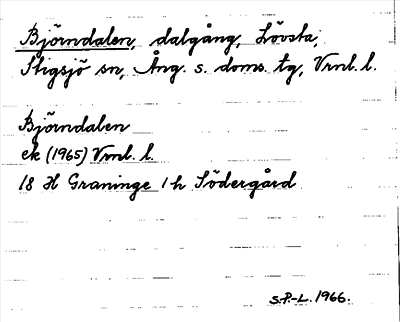 Björndalen, dalgång, Lövsta,
Stigsjö sn, Ång. s. doms. tg, Vrnl. l.
Björndalen
ek (1965) Vrnl. l.
18 H Graninge 1 h Södergård
S.P.-L. 1966.